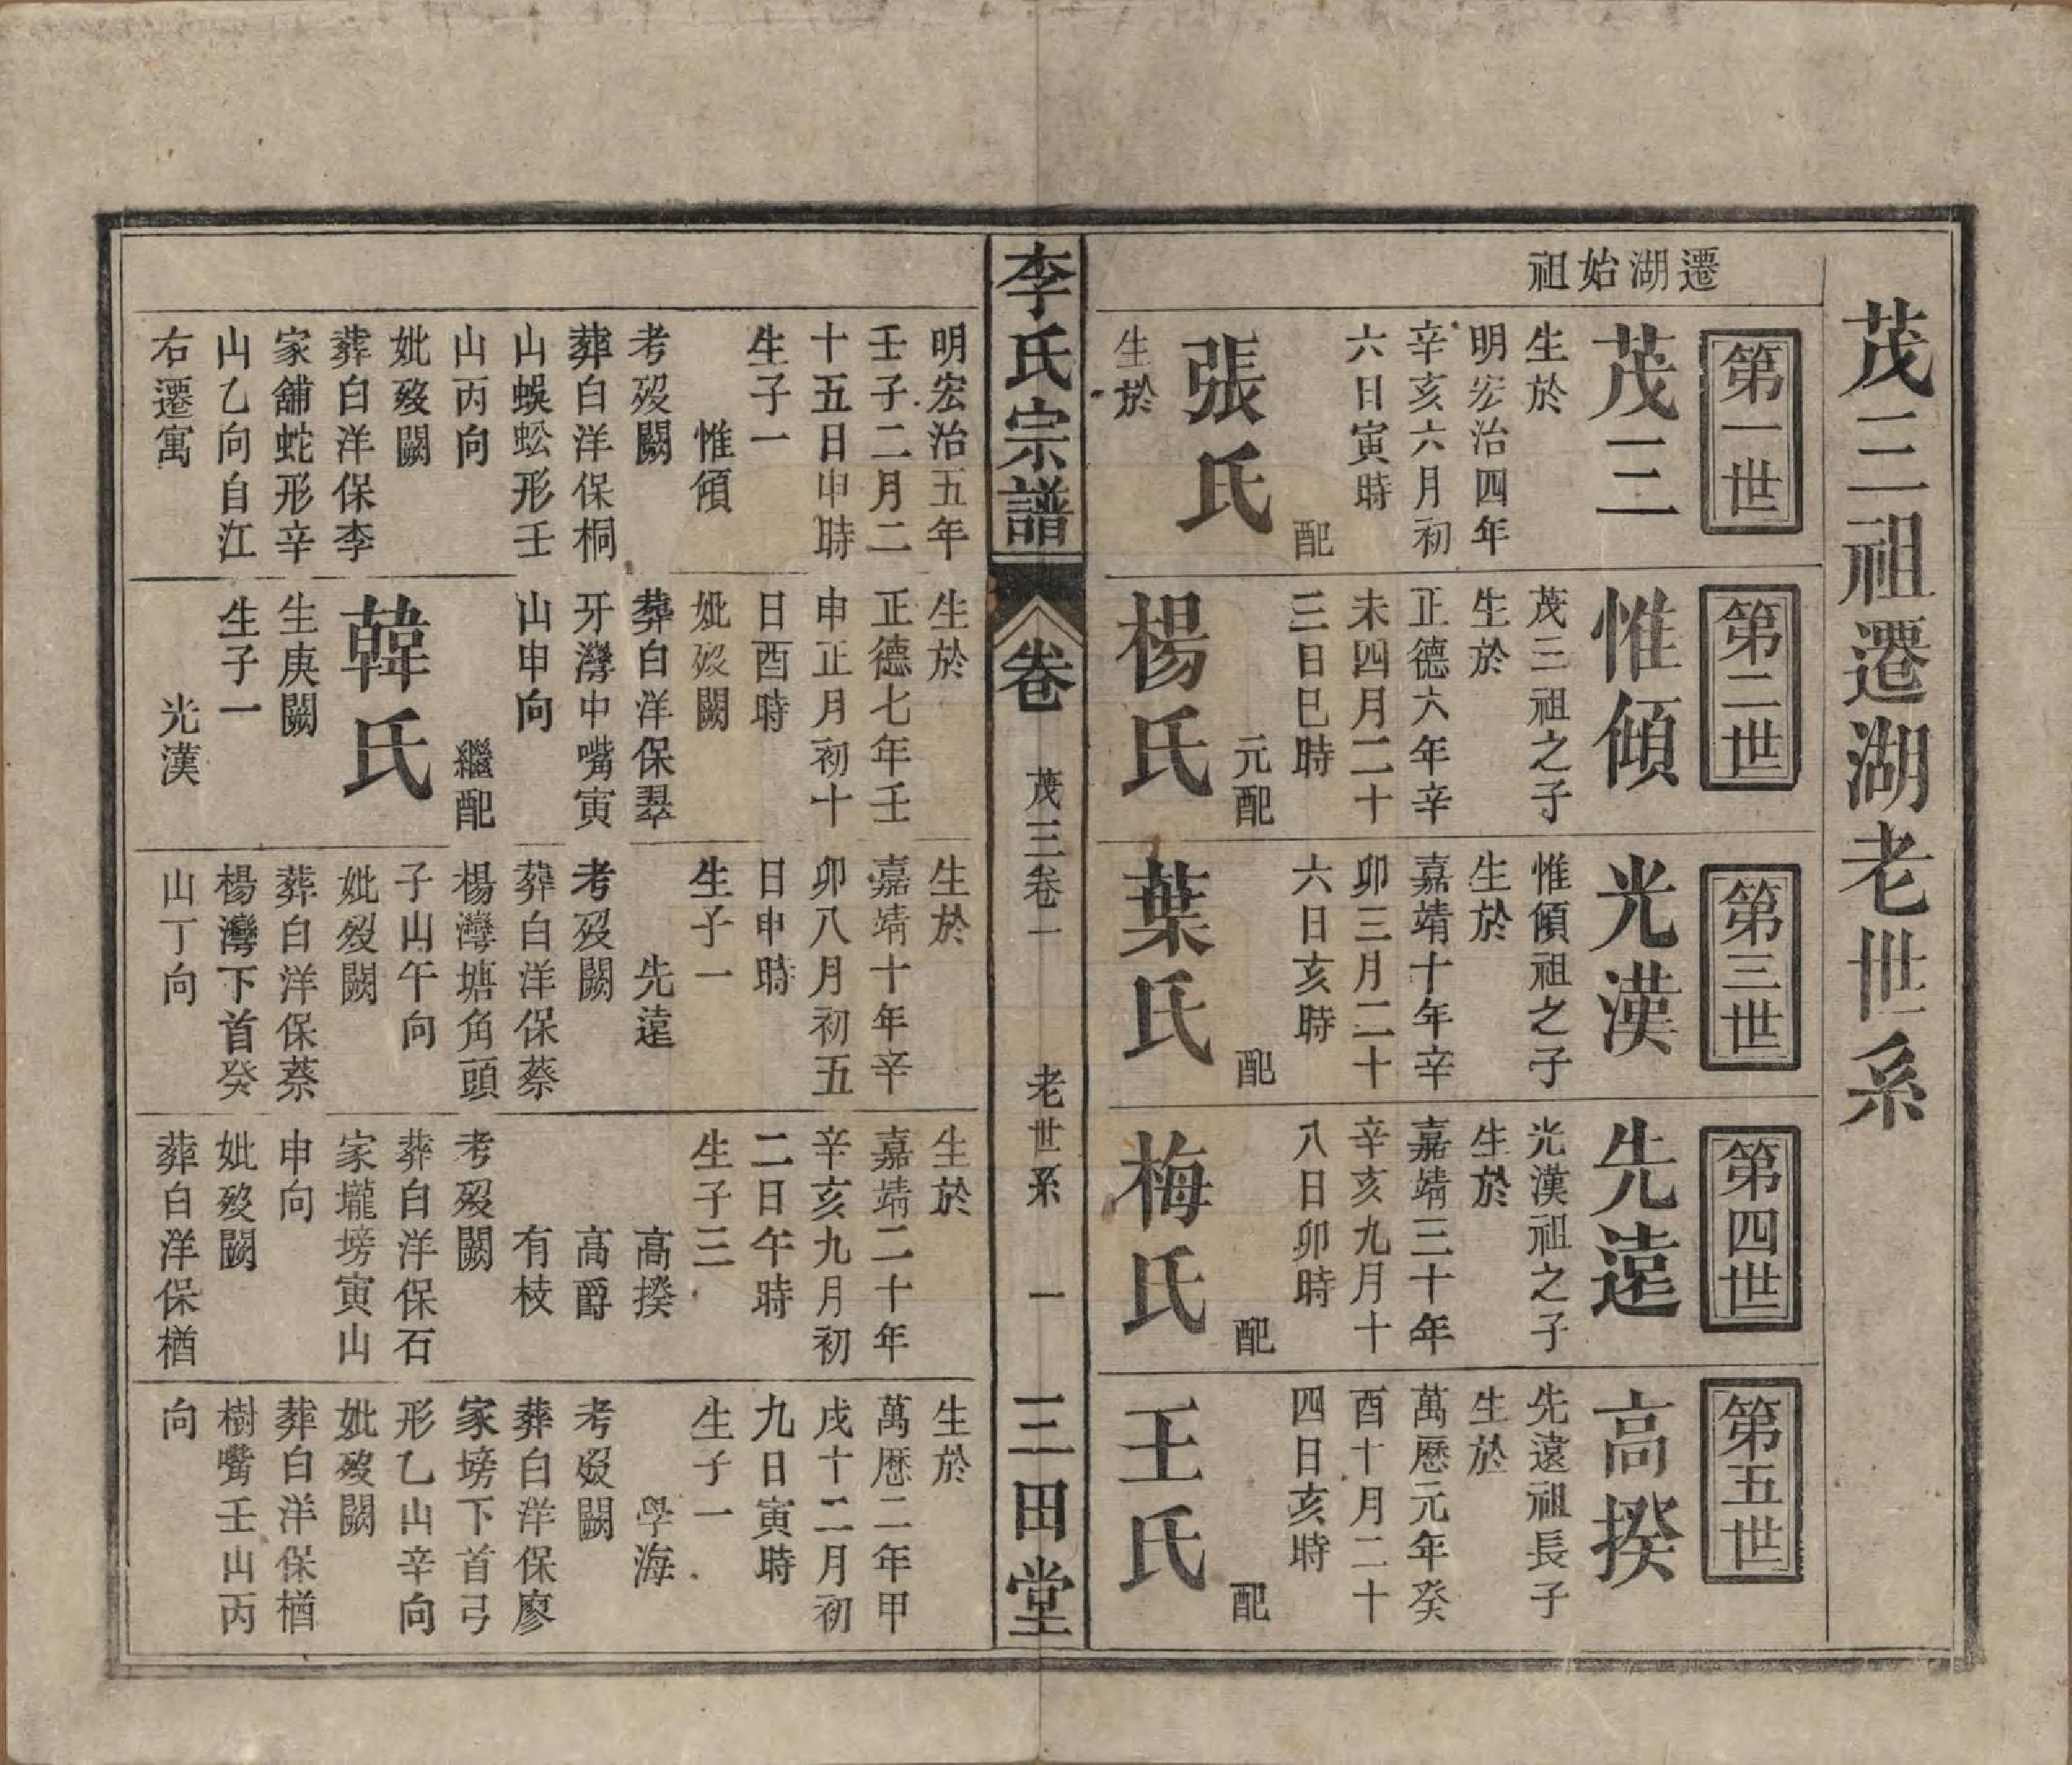 茂三祖遷湖老世系
遷湖始祖
第一世
茂三
生於
明宏治四年
辛亥六月初
六日寅時
配
張氏
生於
第二世
惟傾
茂三祖之子
生於
正德六年辛
未四月二十
三日巳時
元配
楊氏
第三世
光漢
惟傾祖之子
生於
嘉靖十年辛
卯三月二十
六日亥時
配
葉氏
第四世
先遠
光漢祖之子
生於
嘉靖三十年
辛亥九月十
八日卯時
配
梅氏
第五世
高揆
先遠祖長子
生於
萬歷元年癸
酉十月二十
四日亥時
配
王氏
李氏宗譜
卷
茂三卷一
老世系
一
三田堂
明宏治五年
壬子二月二
十五日申時
生子一
惟傾
考歿闕
葬白洋保桐
山蜈蚣形壬
山丙向
妣歿闕
葬白洋保李
家舖蛇形辛
山乙向自江
右遷寓
生於
正德七年壬
申正月初十
日酉時
妣歿闕
葬白洋保翠
牙灣中嘴寅
山申向
繼配
韓氏
生庚闕
生子一
光漢
生於
嘉靖十年辛
卯八月初五
日申時
生子一
先遠
考歿闕
葬白洋保蔡
楊灣塘角頭
子山午向
妣歿闕
葬白洋保蔡
楊灣下首癸
山丁向
生於
嘉靖二十年
辛亥九月初
二日午時
生子三
高揆
高爵
有枝
考歿闕
葬白洋保石
家壠塝寅山
申向
妣歿闕
葬白洋保楢
生於
萬歷二年甲
戌十二月初
九日寅時
生子一
學海
考歿闕
葬白洋保廖
家塝下首弓
形乙山辛向
妣歿闕
葬白洋保楢
樹嘴壬山丙
向